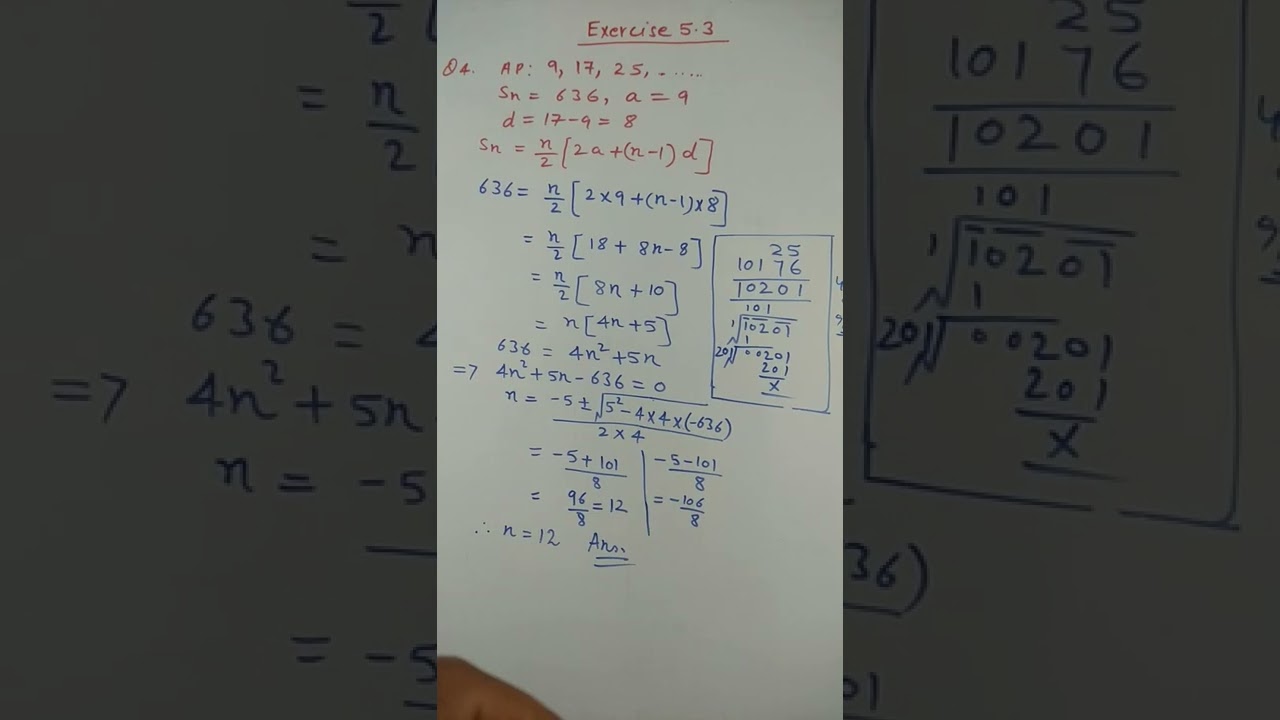 Exercise 5.3
Q4. AP: 9, 17, 25, .......
Sn = 636, a = 9
d = 17-9 = 8
Sn = n/2 [2a+(n-1) d]
636 = n/2 [2×9+(n-1)×8]
= n/2 [18 + 8n-8]
= n/2 [8n+10]
= n[4n+5]
636 = 4n²+5n
=> 4n²+5n-636=0
n = -5 ± √5²-4×4×(-636) / 2×4
= -5+101/8 | -5-101/8
= 96/8 = 12 | = -106/8
∴ n=12 Ans.
25
10176
10201
101
1√10201
1
201√00201
201
×